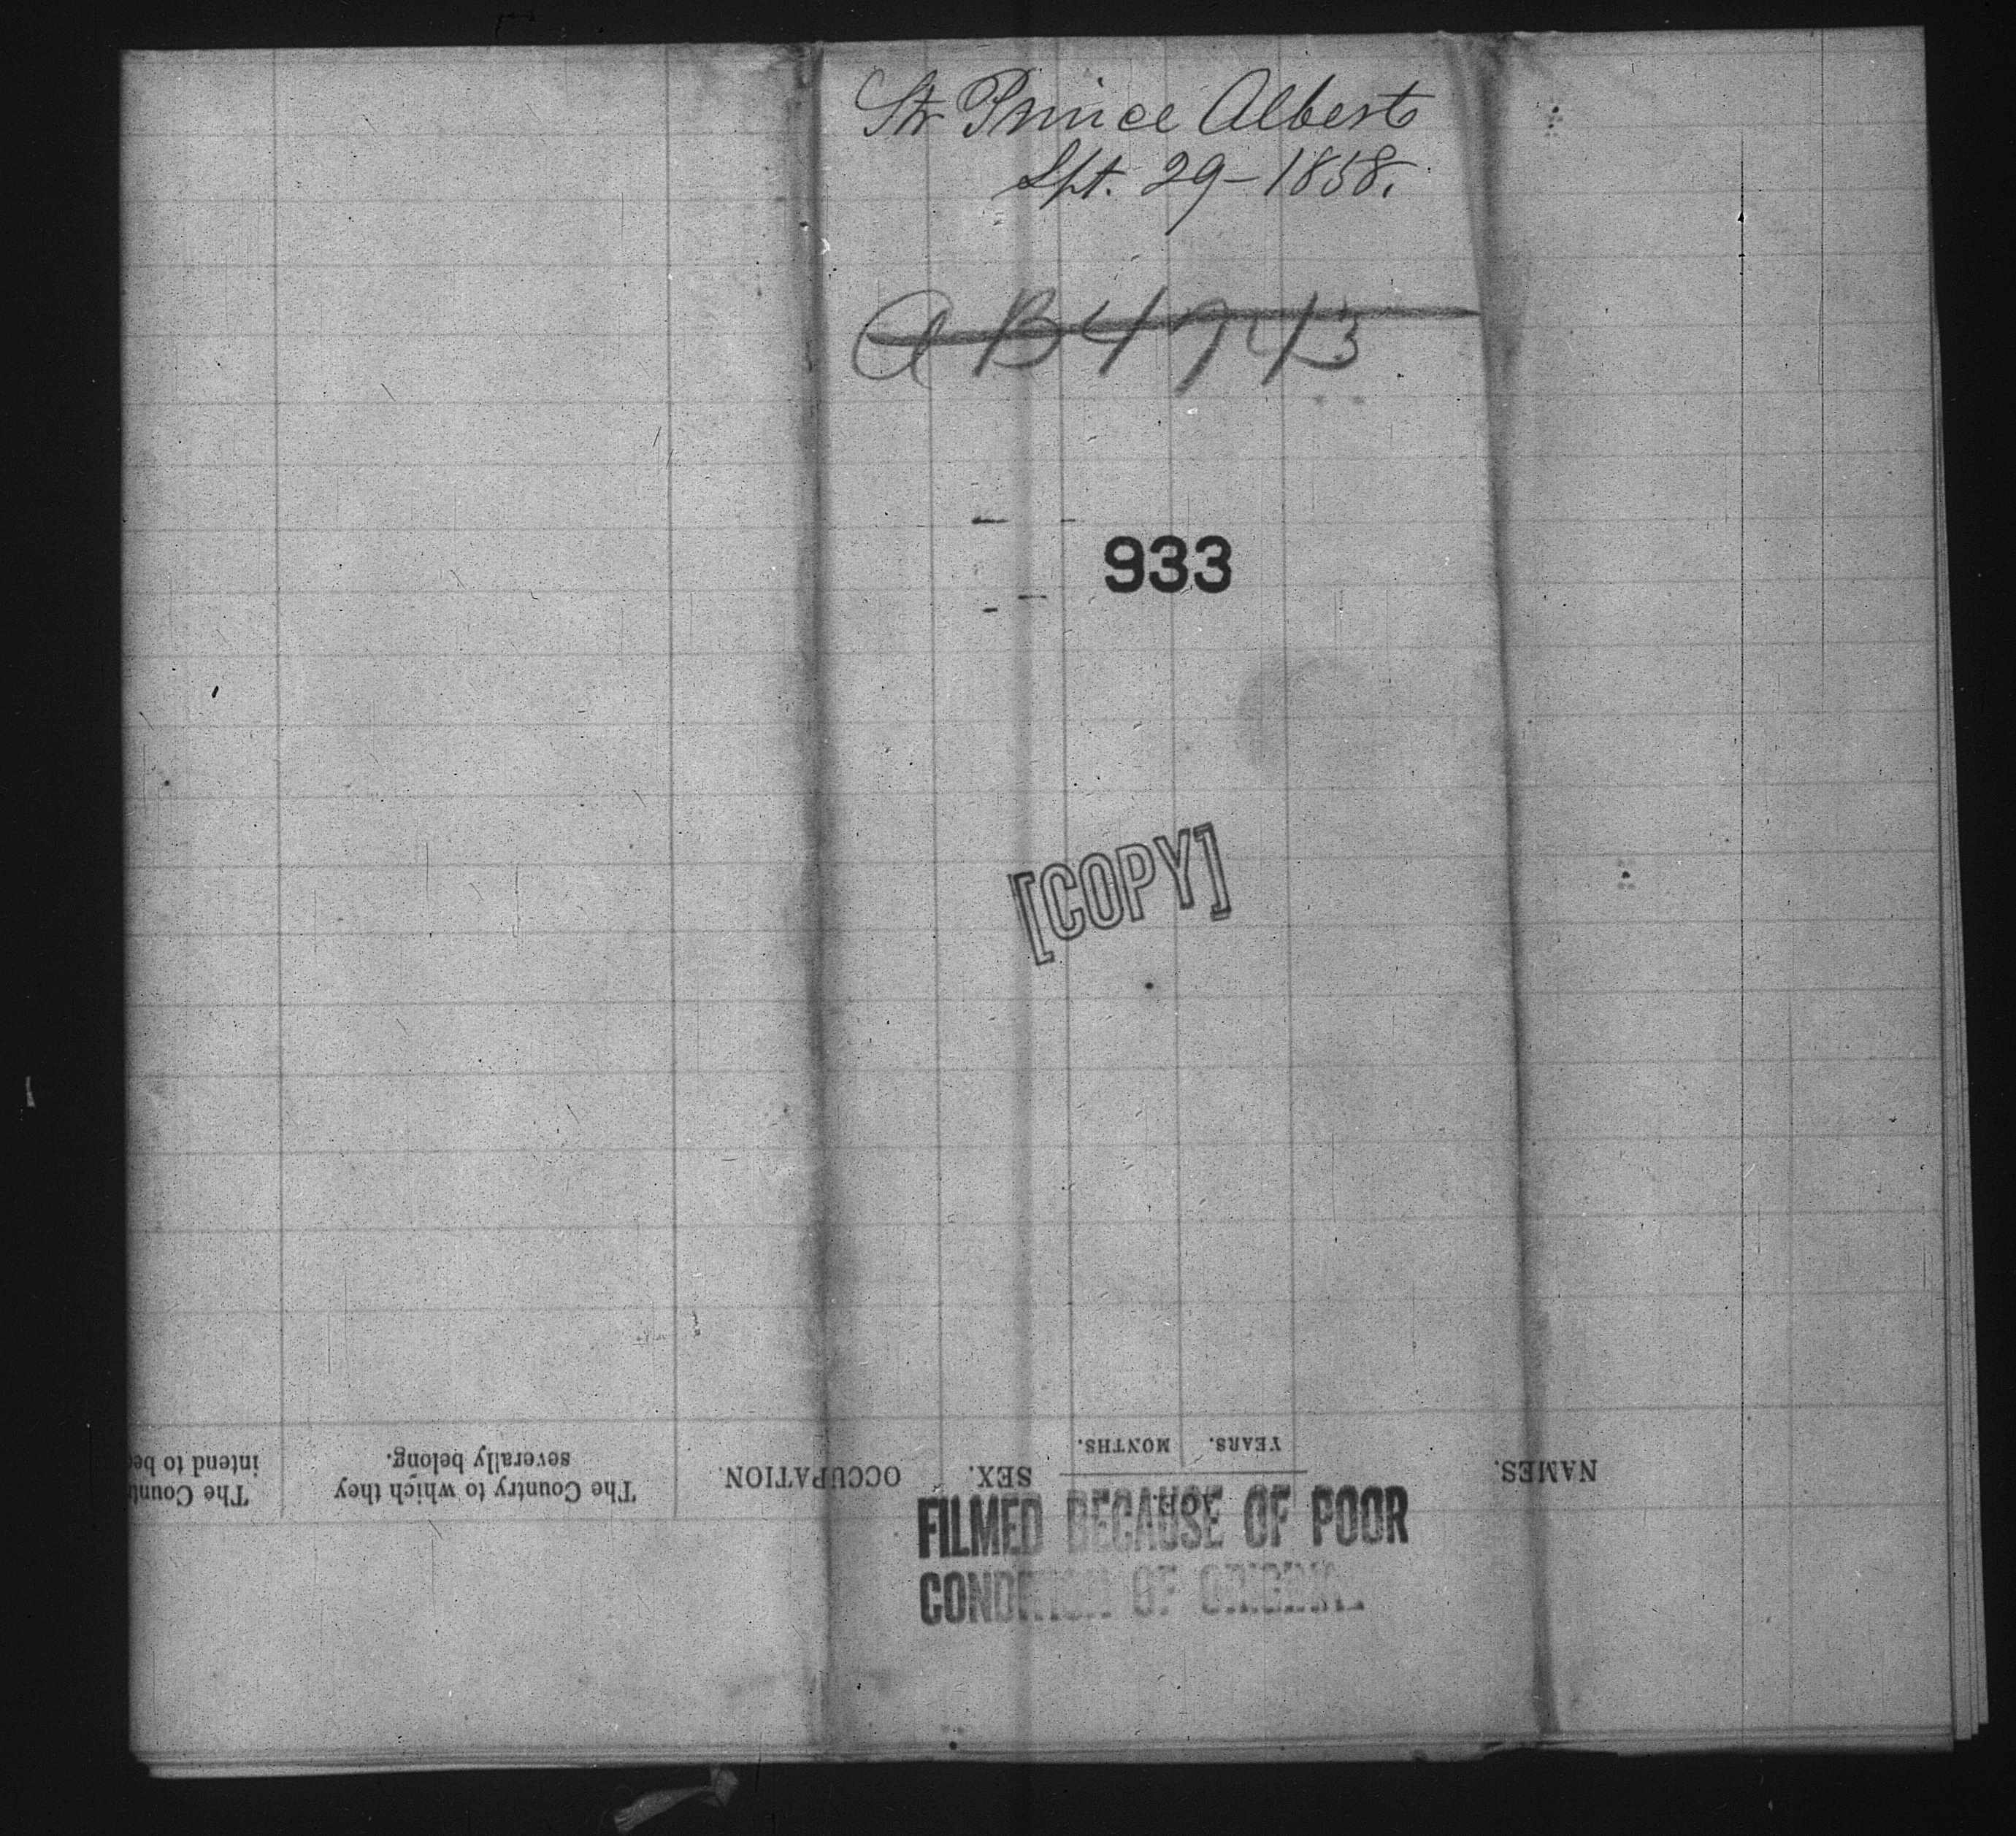 Str Prince Albert
Spt. 29-1858.
AB4743
933
[COPY]
YEARS. MONTHS.
NAMES. AGE. SEX. OCCUPATION.
The Country to which they
severally belong.
The Count
intend to be
FILMED BECAUSE OF POOR
CONDITION OF ORIGINAL